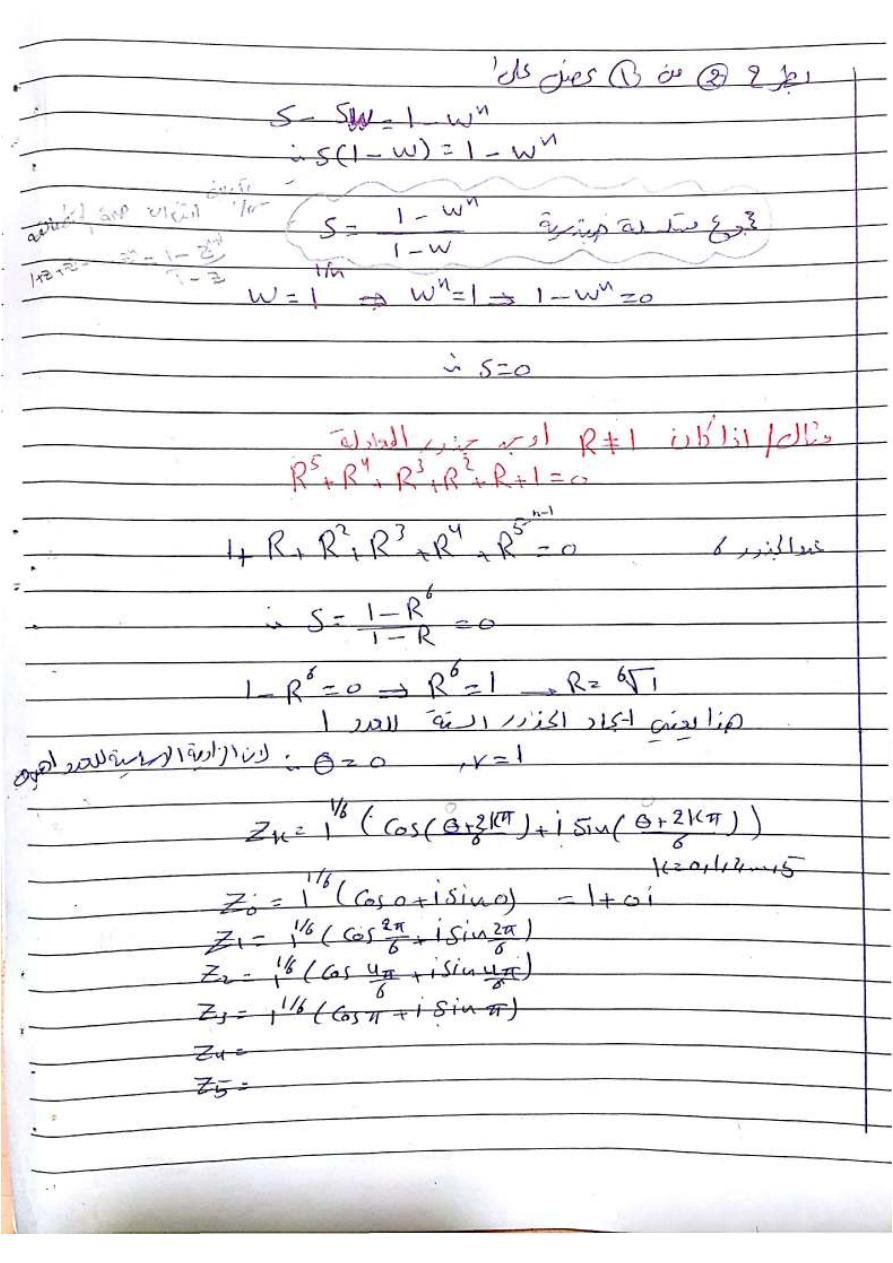 بطرح ② من ① نحصل على
S - SW = 1 - Wⁿ
∴ S(1 - W) = 1 - Wⁿ
S = (1 - Wⁿ)/(1 - W) مجموع متسلسلة هندسية
W = 1^(1/n) ⇒ Wⁿ = 1 ⇒ 1 - Wⁿ = 0
∴ S = 0
مثال/ اذا كان R ≠ 1 اوجد جذور المعادلة
R⁵ + R⁴ + R³ + R² + R + 1 = 0
1 + R + R² + R³ + R⁴ + R⁵ = 0 عدد الجذور 6
∴ S = (1 - R⁶)/(1 - R) = 0
1 - R⁶ = 0 ⇒ R⁶ = 1 → R = ⁶√1
هذا يعني ايجاد الجذور الستة للعدد 1
∴ θ = 0 , r = 1 لان الزاوية الاساسية للعدد
Zₖ = 1^(1/6) (cos((θ + 2kπ)/6) + i sin((θ + 2kπ)/6))
k = 0, 1, 2, ..., 5
Z₀ = 1^(1/6) (cos 0 + i sin 0) = 1 + 0i
Z₁ = 1^(1/6) (cos 2π/6 + i sin 2π/6)
Z₂ = 1^(1/6) (cos 4π/6 + i sin 4π/6)
Z₃ = 1^(1/6) (cos π + i sin π)
Z₄ =
Z₅ =